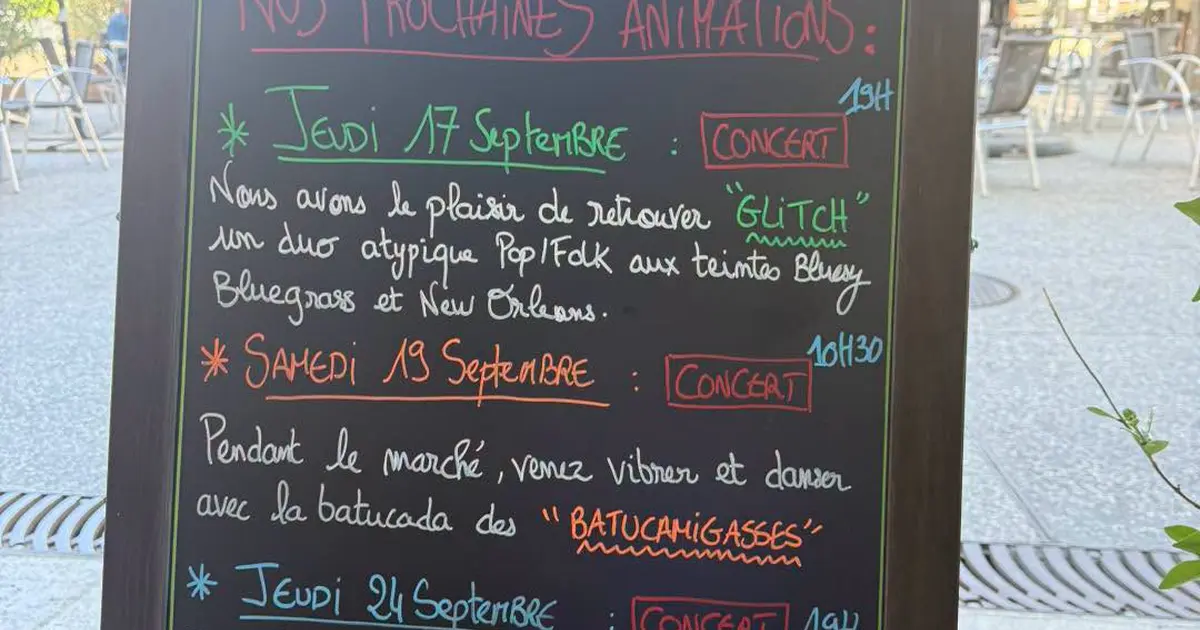 NOS PROCHAINES ANIMATIONS :
* JEUDI 17 SeptemBRE : CONCERT 19H
Nous avons le plaisir de retrouver "GLiTCH"
un duo atypique Pop/Folk aux teintes Bluesy
Bluegrass et New Orleans.
* SAMEDI 19 SeptemBRE : CONCERT 10H30
Pendant le marché, venez vibrer et danser
avec la batucada des "BATUCAMiGASSES"
* JEUDI 24 SeptemBRE : CONCERT 19H